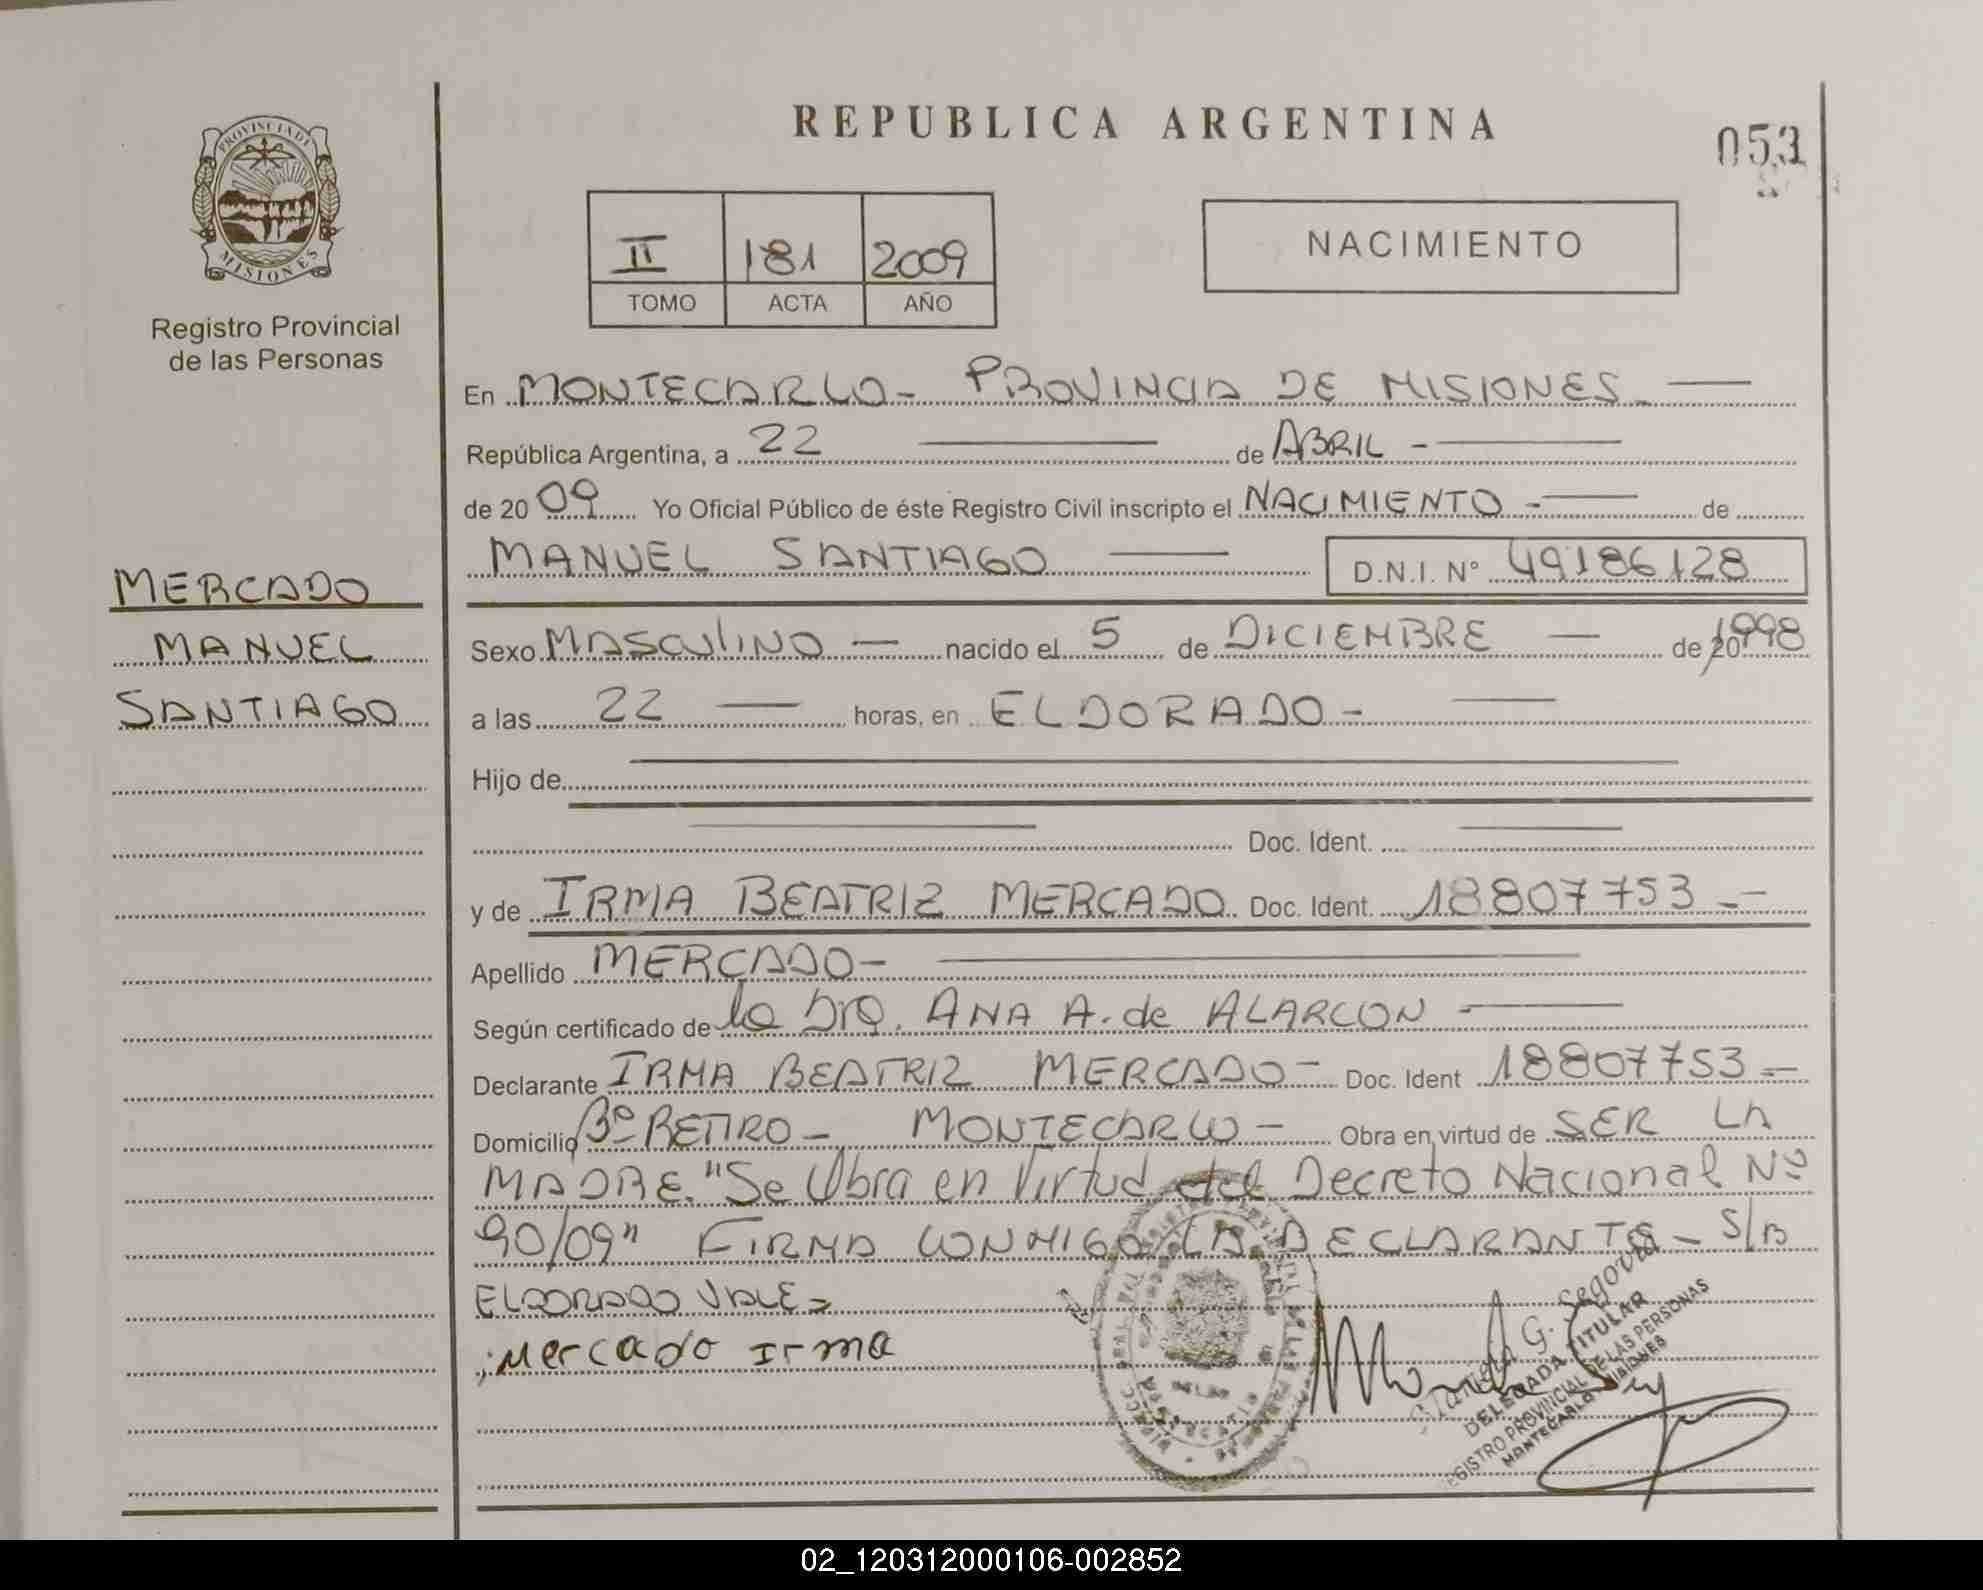 REPUBLICA ARGENTINA
053
PROVINCIA DE MISIONES
Registro Provincial
de las Personas
II 181 2009
TOMO ACTA AÑO
NACIMIENTO
En MONTECARLO - PROVINCIA DE MISIONES -
República Argentina, a 22 de ABRIL -
de 2009 Yo Oficial Público de éste Registro Civil inscripto el NACIMIENTO - de
MANUEL SANTIAGO D.N.I. Nº 49186128
MERCADO
MANUEL
SANTIAGO
Sexo MASCULINO — nacido el 5 de DICIEMBRE — de 1998
a las 22 — horas, en ELDORADO -
Hijo de
Doc. Ident.
y de IRMA BEATRIZ MERCADO Doc. Ident. 18807753 -
Apellido MERCADO -
Según certificado de la Dra. ANA A. de ALARCON
Declarante IRMA BEATRIZ MERCADO - Doc. Ident 18807753 -
Domicilio Bº RETIRO - MONTECARLO - Obra en virtud de SER LA
MADRE. "Se Obra en Virtud del Decreto Nacional Nº
90/09" FIRMA CONMIGO LA DECLARANTE - S/B
ELDORADO VALE -
Mercado Irma
G. Segovia
DELEGADA TITULAR
REGISTRO PROVINCIAL DE LAS PERSONAS
MONTECARLO - MISIONES
02_120312000106-002852